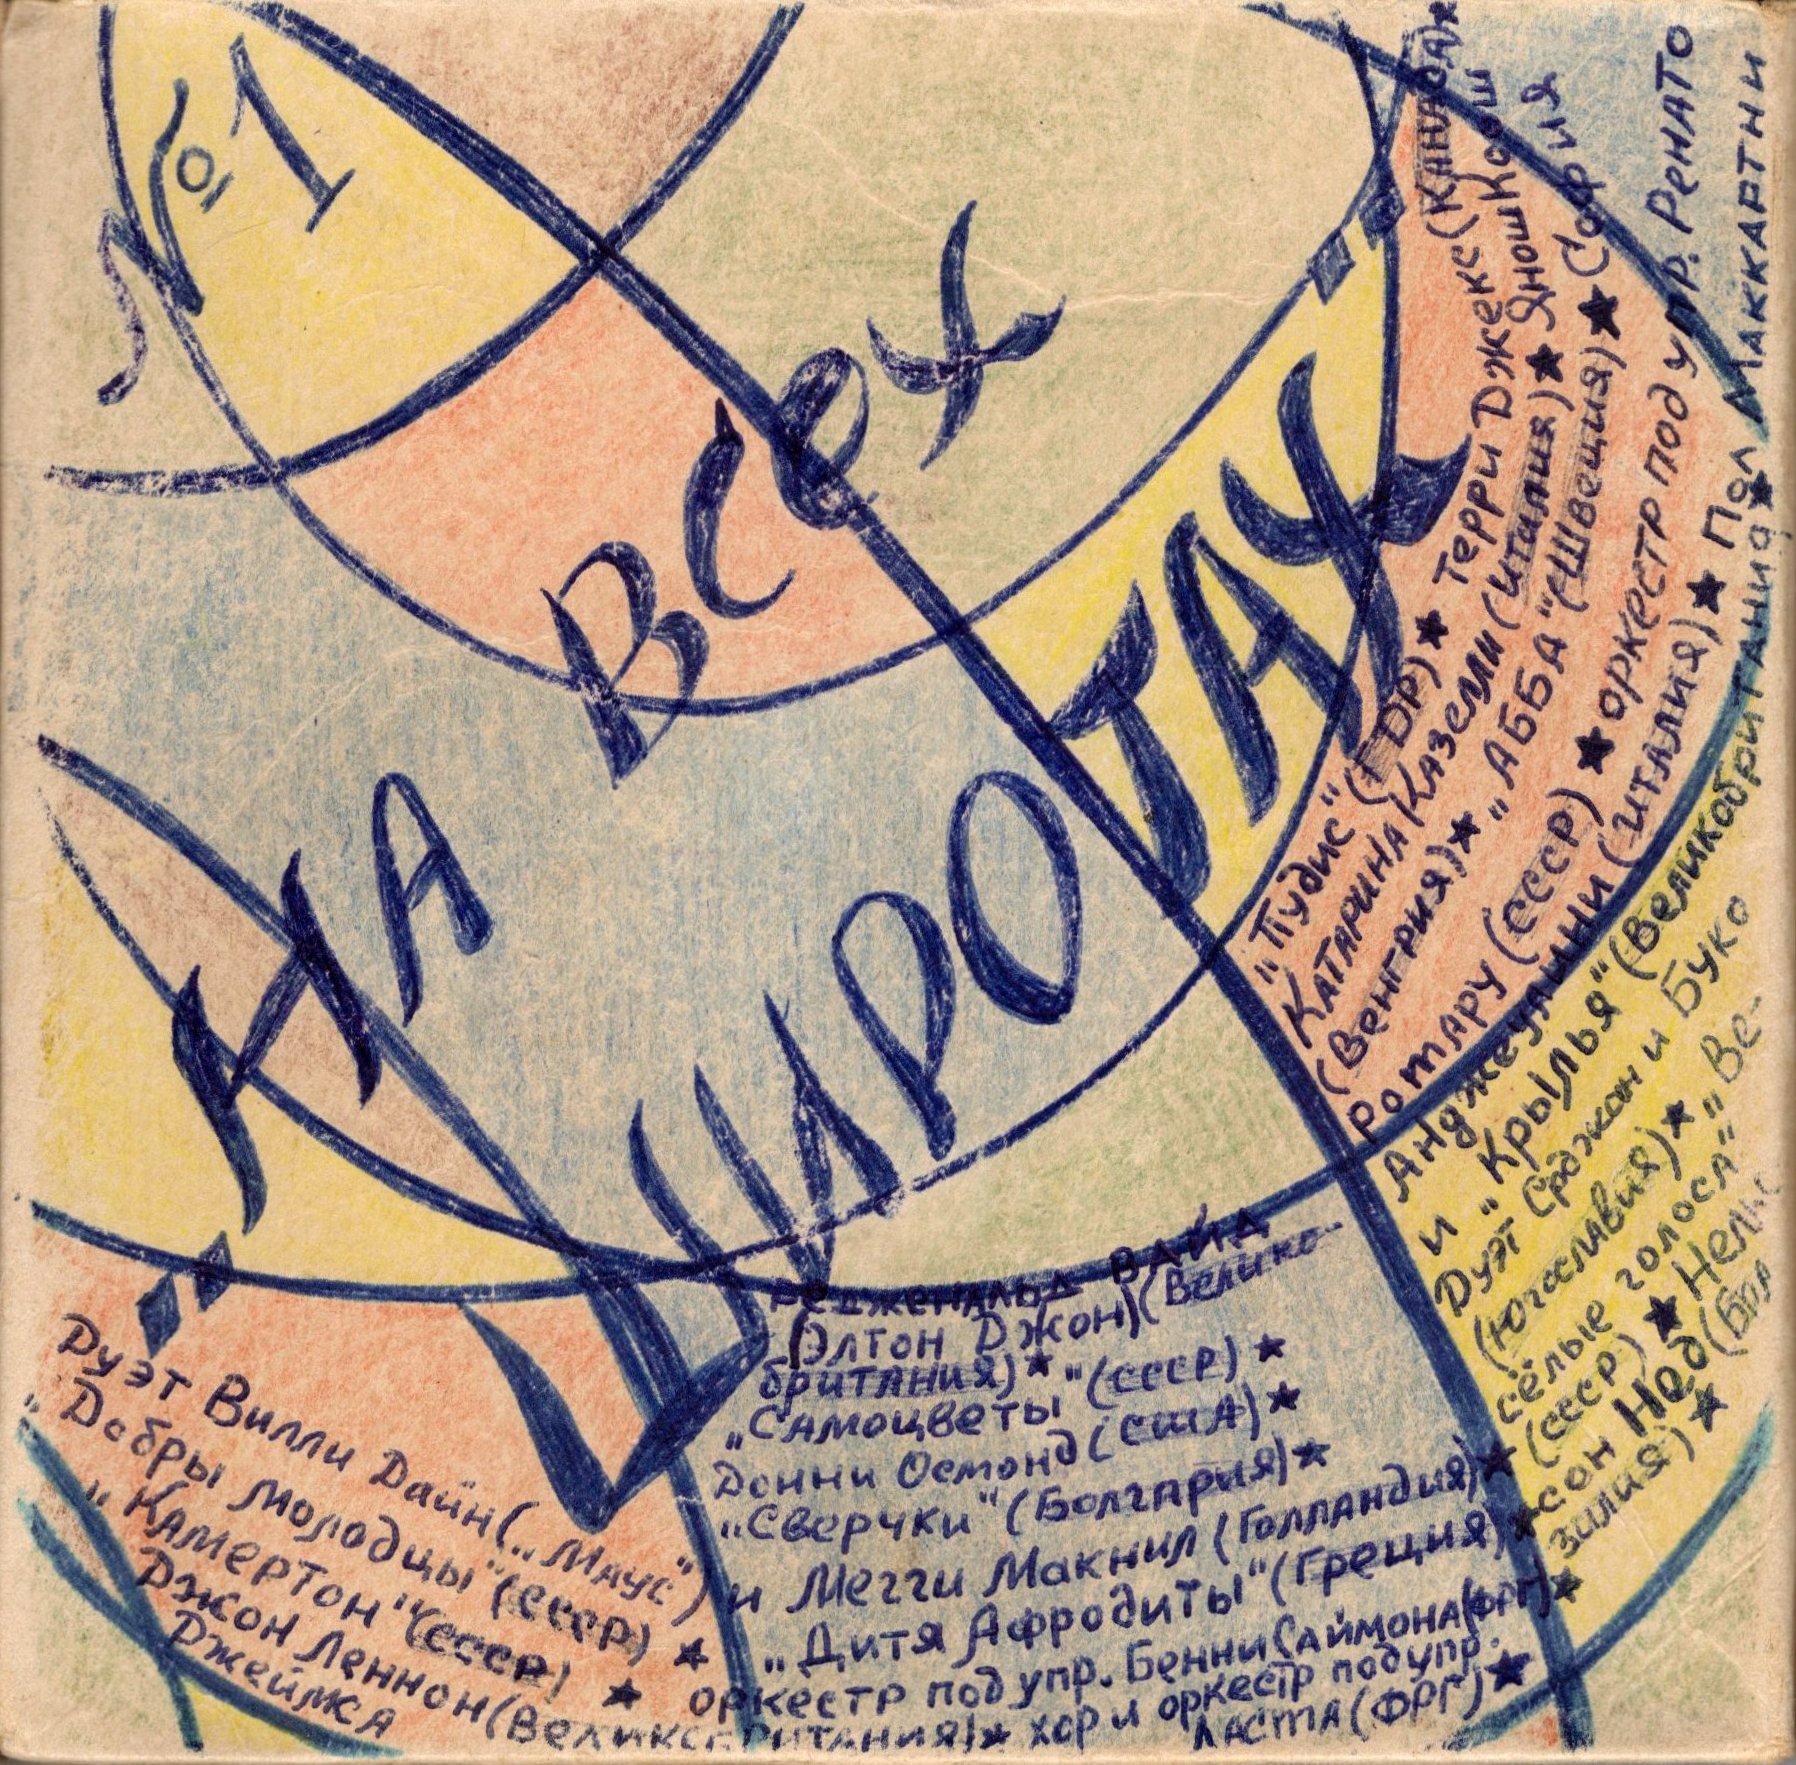 №1
НА ВСЕХ
ШИРОТАХ
„Пудис" (ГДР) ★ Терри Джекс (Канада) ★
Катарина Казелли (Италия) ★ Янош Коош
(Венгрия) ★ „АББА" (Швеция) ★ София
Ротару (СССР) ★ оркестр под упр. Ренато
Анджеулинни (Италия) ★ Пол Маккартни
и „Крылья" (Великобритания) ★
Дуэт Срджан и Буко
(Югославия) ★ „Ве-
сёлые голоса"
(СССР) ★ Нель
сон Нед (Бра
зилия) ★
Редженальд ВАЙД
(Элтон Джон) (Велико-
британия) ★
„Самоцветы" (СССР) ★
Донни Осмонд (США) ★
„Сверчки" (Болгария) ★
Дуэт Вилли Дайн („Маус") и Мегги Макнил (Голландия) ★
„Добры молодцы" (СССР) ★ „Дитя Афродиты" (Греция) ★
„Камертон" (СССР) ★ оркестр под упр. Бенни Саймона (ФРГ) ★
Джон Леннон (Великобритания) ★ хор и оркестр под упр.
Джеймса Ласта (ФРГ) ★